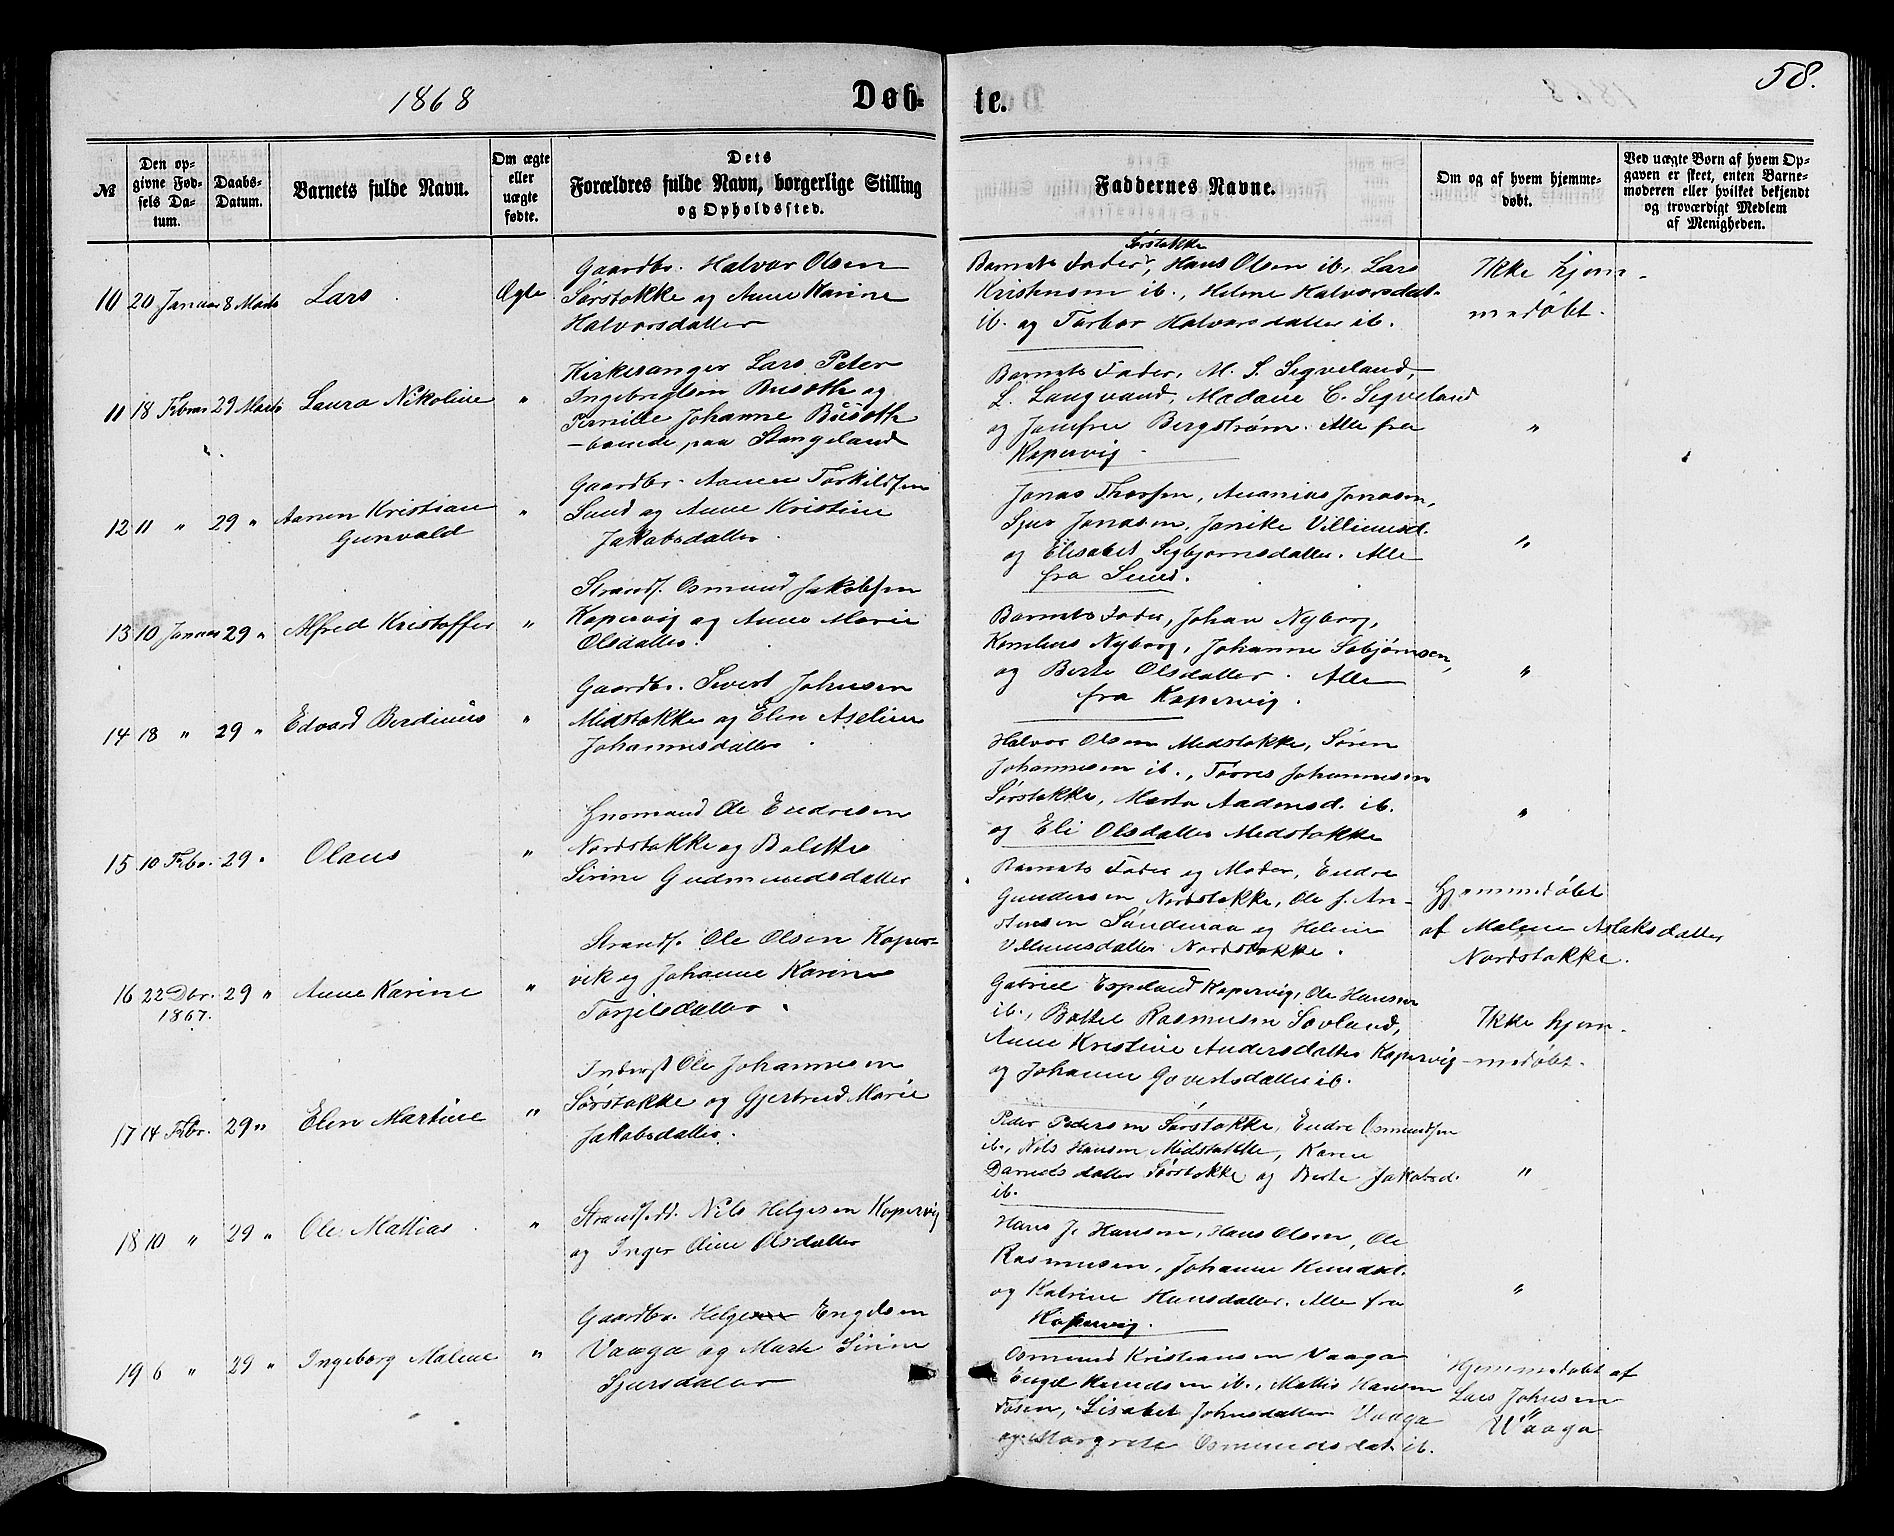 1868
Døb-
te.
58.
№
Den op-
givne Fød-
sels Da-
tum.
Daabs-
Datum.
Barnets fulde Navn.
Om ægte
eller
uægte
fødte.
Dets
Forældres fulde Navn, borgerlige Stilling
og Opholdssted.
Faddernes Navne.
Om og af hvem hjemme-
døbt.
Ved uægte Børn af hvem Op-
gaven er skeet, enten Barne-
moderen eller hvilket bekjendt
og troværdigt Medlem
af Menigheden.
10 20 Januar 8 Marts Lars Ægte
Gaardbr. Halvor Olsen
Sørstokke og Anne Karine
Halvorsdatter
Sørstokke
Barnets Fader, Hans Olsen ib., Lars
Kristensen ib., Helene Halvorsdat.
ib. og Torbor Halvorsdatter ib.
Ikke hjem-
medøbt.
11 18 Febrar 29 Marts Laura Nikoline "
Kirkesanger Lars Peter
Ingebrigtsen Busoth og
Emilie Johanne Busoth
- boende paa Stangeland
Barnets Fader, M. S. Seqveland,
L. Langvand, Madame C. Seqveland
og Jomfru Bergstrøm. Alle fra
Kopervig.
"
12 11 " 29 " Aanen Kristian
Gunvald "
Gaardbr. Aanen Torkildsen
Sund og Anne Kristine
Jakobsdatter.
Jonas Thorsen, Ananias Jonasen,
Sjur Jonasen, Janike Villiumsd.
og Elisabet Segbjørnsdatter. Alle
fra Sund.
"
13 10 Januar 29 " Alfred Kristoffer "
Strands. Osmund Jakobsen
Kopervig og Anne Marie
Olsdatter.
Barnets Fader, Johan Nyborg,
Kornelius Nyborg, Johanne Sebjørnsen,
og Berte Olsdatter. Alle
fra Kopervig.
"
14 18 " 29 " Edvard Berdinius "
Gaardbr. Sivert Johnsen
Midstokke og Elen Aseline
Johannesdatter.
Halvor Olsen Medstokke, Søren
Johannesen ib., Torres Johannesen
Sørstokke, Marta Aadensd. ib.
og Eli Olsdatter Medstokke
"
15 10 Febr. 29 " Olaus "
Huusmand Ole Endresen
Nordstokke og Bolette
Sirine Gudmundsdatter
Barnets Fader og Moder, Endre
Gundersen Nordstokke, Ole J. An-
stensen Søndenaa og Helene
Villumsdatter Nordstokke.
Hjemmedøbt
af Malene Aslaksdatter
Nordstokke.
16 22 Dbr. 29 " Anne Karine "
1867.
Strands. Ole Olsen Koper-
vik og Johanne Karine
Torjelsdatter.
Gabriel Espeland Kopervig, Ole Hansen
ib., Bottel Rasmusen Sovland,
Anne Kristine Andersdatter Kopervig
og Johanne Govertsdatter ib.
Ikke hjem-
medøbt.
17 14 Febr. 29 " Elen Martine "
Inderst Ole Johannesen
Sørstokke og Gjertrud Marie
Jakobsdatter.
Peder Pedersen Sørstokke, Endre Osmundsen
ib., Nils Hansen Midstokke, Karen
Danielsdatter Sørstokke og Berte Jakobsd.
ib.
"
18 10 " 29 " Ole Mattias "
Strandsidd. Nils Helgesen Kopervig
og Inger Oline Olsdatter
Hans J. Hansen, Hans Olsen, Ole
Rasmusen, Johanne Knudsd.
og Katrine Hansdatter. Alle fra
Kopervig.
"
19 6 " 29 " Ingeborg Malene "
Gaardbr. Helge Engelsen
Vaaga og Marte Sirine
Sjursdatter
Osmund Kristiansen Vaaga
Engel Knudsen ib., Mattis Hansen
Fosen, Lisabet Johnsdatter Vaaga
og Margrete Osmundsdat. ib.
Hjemmedøbt af
Lars Johnsen
Vaaga